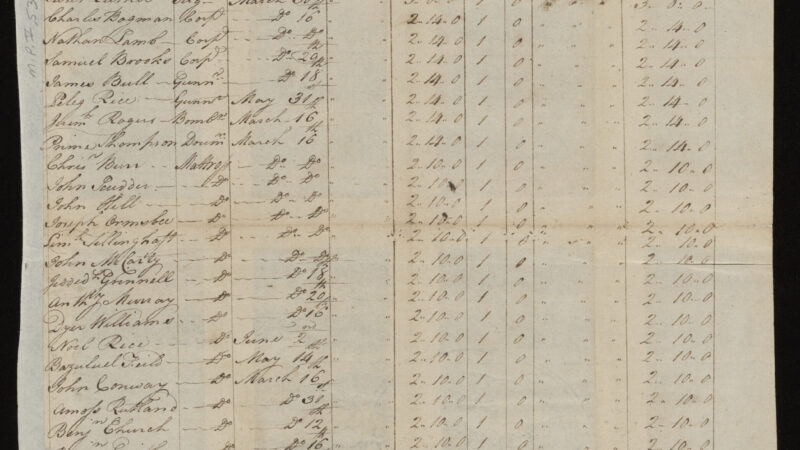 Charles Dogman Corpl Do 16 2 " 14 " 0 1 0 " " 2 " 14 " 0
Nathan Lamb Corpl Do Do 2 " 14 " 0 1 0 " " 2 " 14 " 0
Samuel Brooks Corpl Do 20th 2 " 14 " 0 1 0 " " 2 " 14 " 0
James Bull Gunnr Do 18 2 " 14 " 0 1 0 " " 2 " 14 " 0
Peleg Rice Gunnr May 31st 2 " 14 " 0 1 0 " " 2 " 14 " 0
Rogers Bombr March 16th 2 " 14 " 0 1 0 " " 2 " 14 " 0
Prime Thompson Drumr March 16th 2 " 14 " 0 1 0 " " 2 " 14 " 0
Chrisr Burr Mattross Do Do 2 " 10 " 0 1 0 " " 2 " 10 " 0
John Do Do Do 2 " 10 " 0 1 0 " " 2 " 10 " 0
John Hill Do Do Do 2 " 10 " 0 1 0 " " 2 " 10 " 0
Joseph Ormsbee Do Do Do 2 " 10 " 0 1 0 " " 2 " 10 " 0
Tillinghast Do Do Do 2 " 10 " 0 1 0 " " 2 " 10 " 0
John McCarty Do Do Do 2 " 10 " 0 1 0 " " 2 " 10 " 0
Gunnell Do Do 18th 2 " 10 " 0 1 0 " " 2 " 10 " 0
Anthy Murray Do Do 20th 2 " 10 " 0 1 0 " " 2 " 10 " 0
Dyer Williams Do Do 16th 2 " 10 " 0 1 0 " " 2 " 10 " 0
Noel Rice Do June 2nd 2 " 10 " 0 1 0 " " 2 " 10 " 0
Bazuluel Feild Do May 14th 2 " 10 " 0 1 0 " " 2 " 10 " 0
John Conway Do March 16th 2 " 10 " 0 1 0 " " 2 " 10 " 0
Amoss Rutland Do Do 31st 2 " 10 " 0 1 0 " " 2 " 10 " 0
Benjn Church Do Do 12th 2 " 10 " 0 1 0 " " 2 " 10 " 0
Do Do 16th 2 " 10 " 0 1 0 " " 2 " 10 " 0